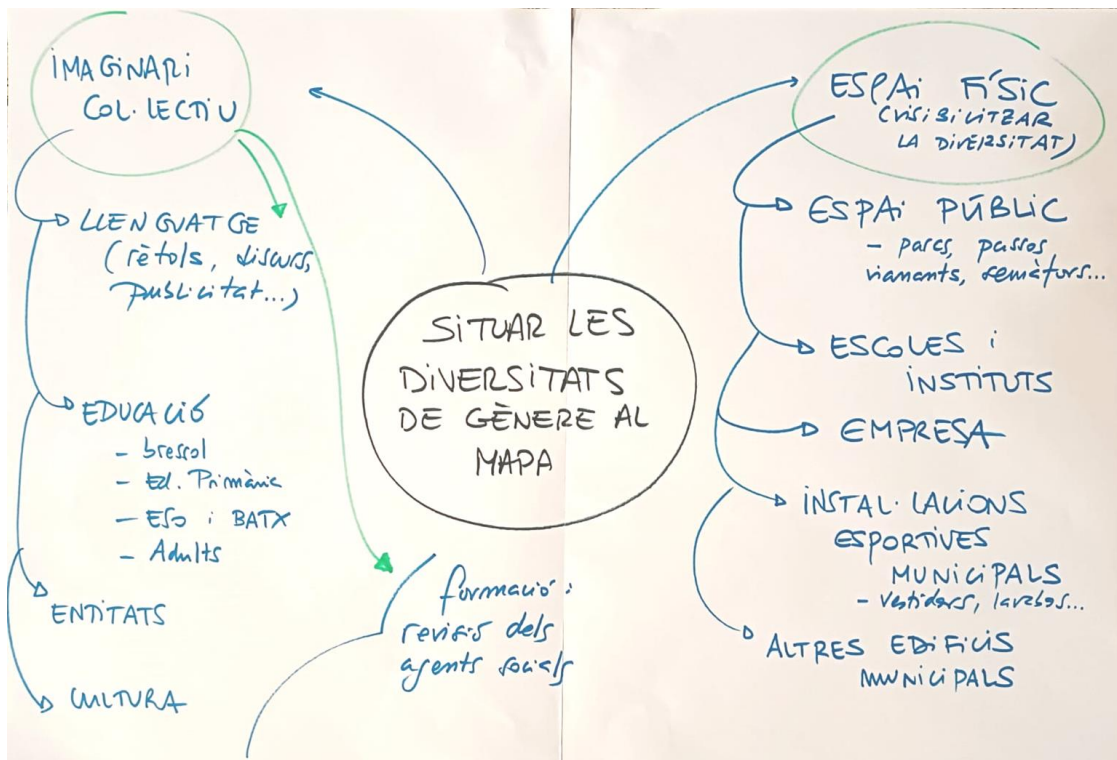 IMAGINARI
COL·LECTIU
LLENGUATGE
(rètols, discurs,
publicitat...)
EDUCACIÓ
- bressol
- Ed. Primària
- ESO i BATX
- Adults
ENTITATS
CULTURA
SITUAR LES
DIVERSITATS
DE GÈNERE AL
MAPA
formació i
revisió dels
agents socials
ESPAI FÍSIC
(VISIBILITZAR
LA DIVERSITAT)
ESPAI PÚBLIC
- parcs, passos
vianants, semàfors...
ESCOLES i
INSTITUTS
EMPRESA
INSTAL·LACIONS
ESPORTIVES
MUNICIPALS
- Vestidors, lavabos...
ALTRES EDIFICIS
MUNICIPALS